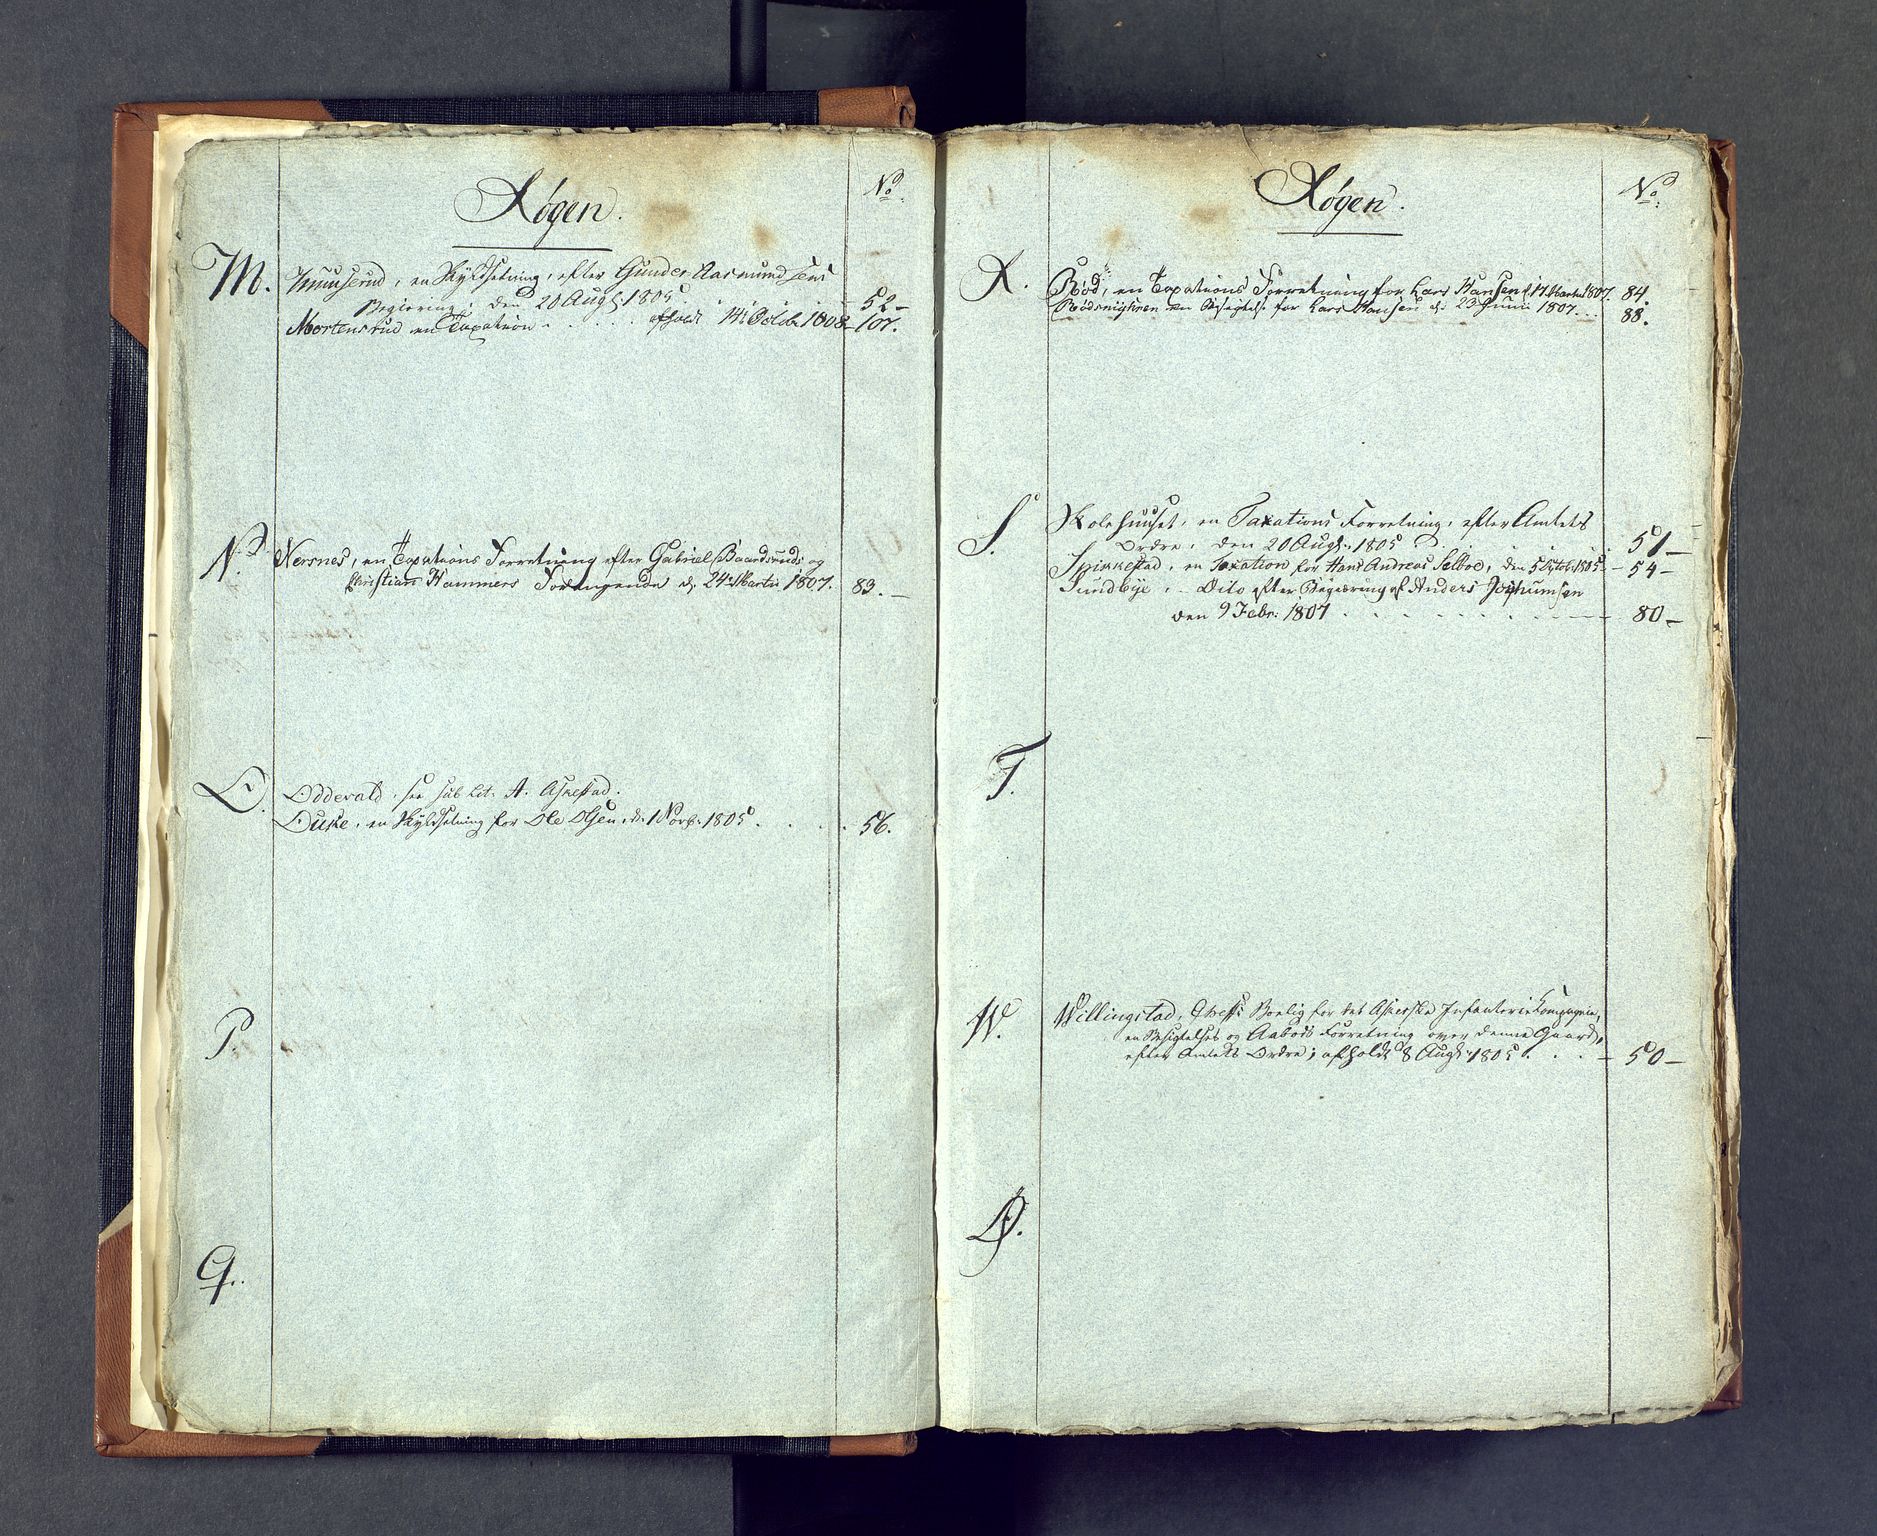 Røgen.
No.
M.
Muuserud, en Skyldsetning, efter Gunder Aasmundsens
Begiering, den 20 Aug: 1805. 52-
Mortensrud en Taxation . . . . . afholdt 14 Octobr 1808- 107.
N.
Nersnes, en Taxations Forretning efter Gabriel Baardsruds og
Christians Hammers Forlangende d: 24 Martii 1807. 83.-
O.
Oddevald, see sub Lit. A. Askestad.
Ouske, en Skyldsetning for Ole Olsen, d: 1 Novb: 1805. . . . . 56.
P.
Q.
Røgen.
No.
R.
Rød, en Taxations Forretning for Lars Hansen d: 17 Martii 1807. 84.
Rødsmighren en Besigtelse for Lars Hansen d: 23 Junii 1807. . . 88.
S.
Skolehuuset, en Taxations Forretning, efter Amtets
Ordre, den 20 Aug: 1805. . . . 51-
Spikkestad, en Taxation for Hans Andreas Selboe, den 5 Octob: 1805- 54-
Sundbye, - Dito efter Begiæring af Anders Jochumsen
den 9 Febr: 1807 . . . . . . . . 80-
T.
W.
Willingstad, Cheffs Boelig for det Askerske Infanterie Kompagnie,
en Besigtelses og Aabods Forretning over denne Gaard,
efter Amtets Ordre; afholdt 8 Aug: 1805. . . - 50-
Ø.